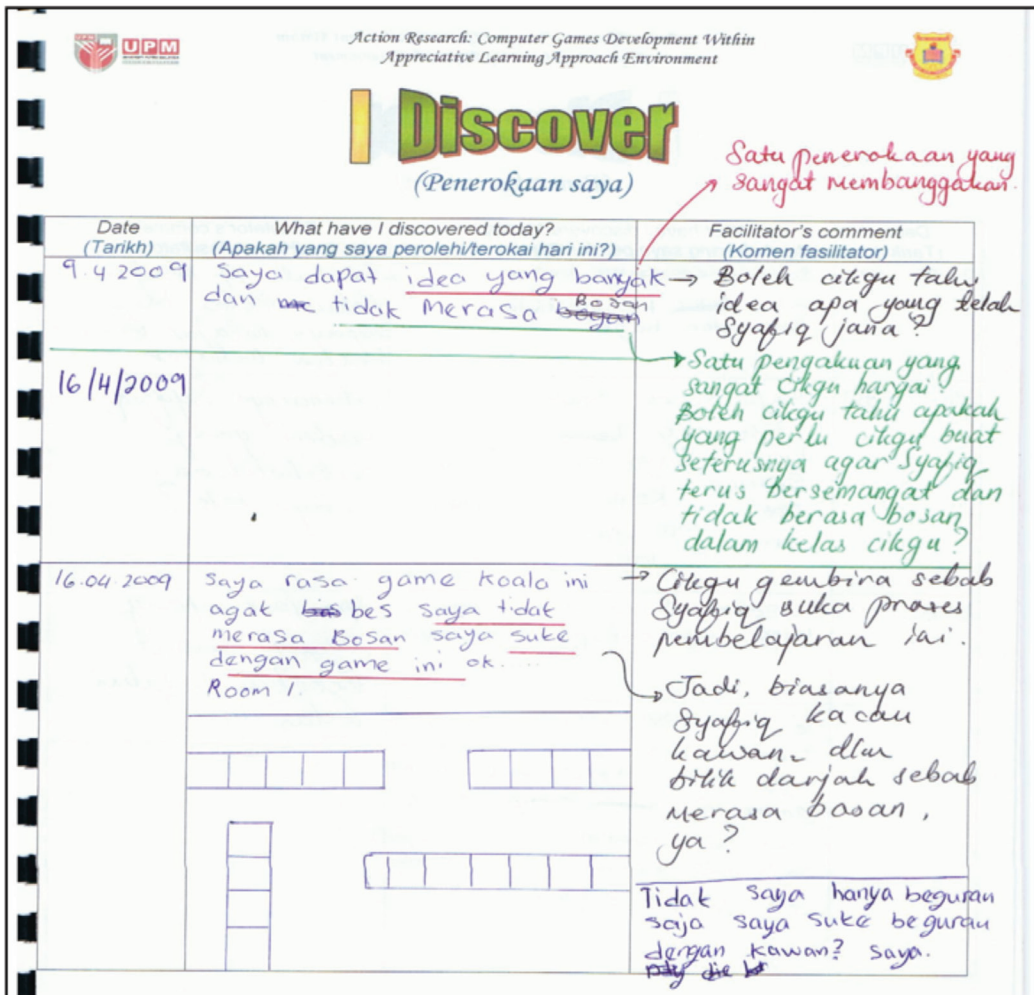 UPM
Action Research: Computer Games Development Within
Appreciative Learning Approach Environment
I Discover
(Penerokaan saya)
Satu penerokaan yang
sangat membanggakan.
Date
(Tarikh)
What have I discovered today?
(Apakah yang saya perolehi/terokai hari ini?)
Facilitator's comment
(Komen fasilitator)
9.4 2009
Saya dapat idea yang banyak
dan tidak merasa Bosan
Boleh cikgu tahu
idea apa yang telah
Syafiq jana?
Satu pengakuan yang
sangat cikgu hargai.
Boleh cikgu tahu apakah
yang perlu cikgu buat
seterusnya agar Syafiq
terus bersemangat dan
tidak berasa bosan
dalam kelas cikgu?
16/4/2009
16.04.2009
Saya rasa game koala ini
agak bes saya tidak
merasa Bosan saya suke
dengan game ini ok....
Room 1.
Cikgu gembira sebab
Syafiq suka proses
pembelajaran ini.
Jadi, biasanya
Syafiq kacau
kawan2 dlm
bilik darjah sebab
merasa bosan,
ya?
Tidak saya hanya beguran
saja saya suke beguran
dengan kawan? saya.